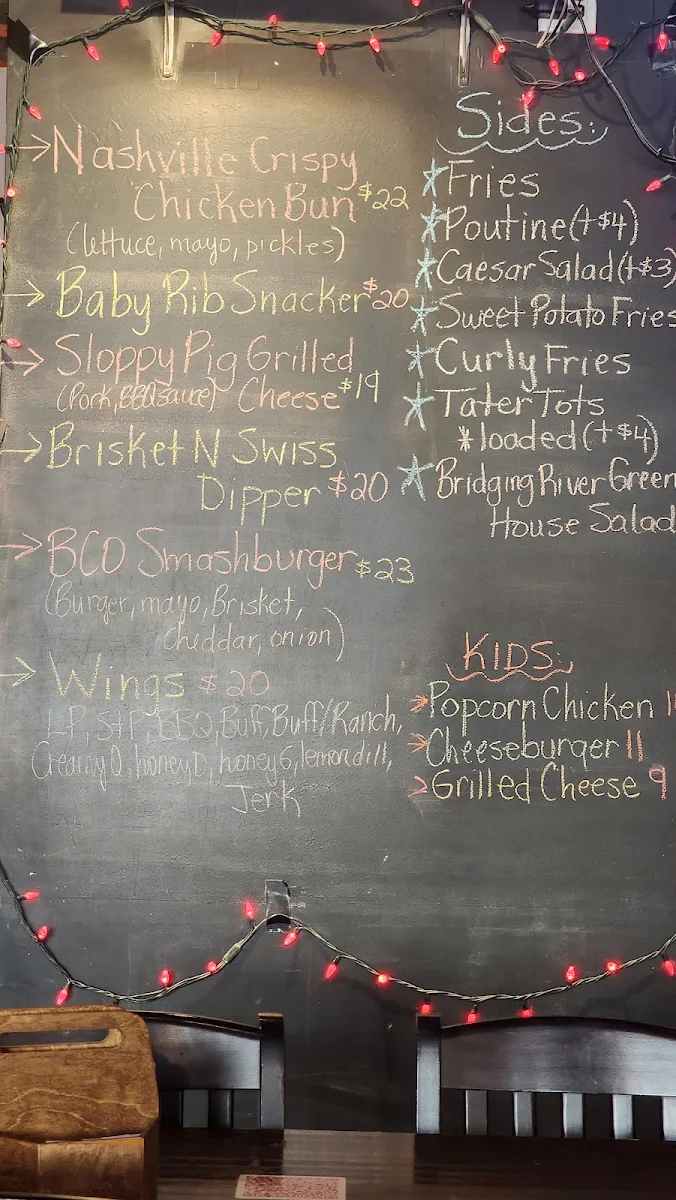 Nashville Crispy
Chicken Bun $22
(lettuce, mayo, pickles)
Baby Rib Snacker $20
Sloppy Pig Grilled
(Pork, BBQ sauce) Cheese $19
Brisket N Swiss
Dipper $20
BCO Smashburger $23
(Burger, mayo, Brisket,
cheddar, onion)
Wings $20
LP, S+P, BBQ, Buff, Buff/Ranch,
Creamy D, honey D, honey G, lemon dill,
Jerk
Sides:
Fries
Poutine (+$4)
Caesar Salad (+$3)
Sweet Potato Fries
Curly Fries
Tater Tots
*loaded (+$4)
Bridging River Green
House Salad
KIDS:
Popcorn Chicken
Cheeseburger 11
Grilled Cheese 9